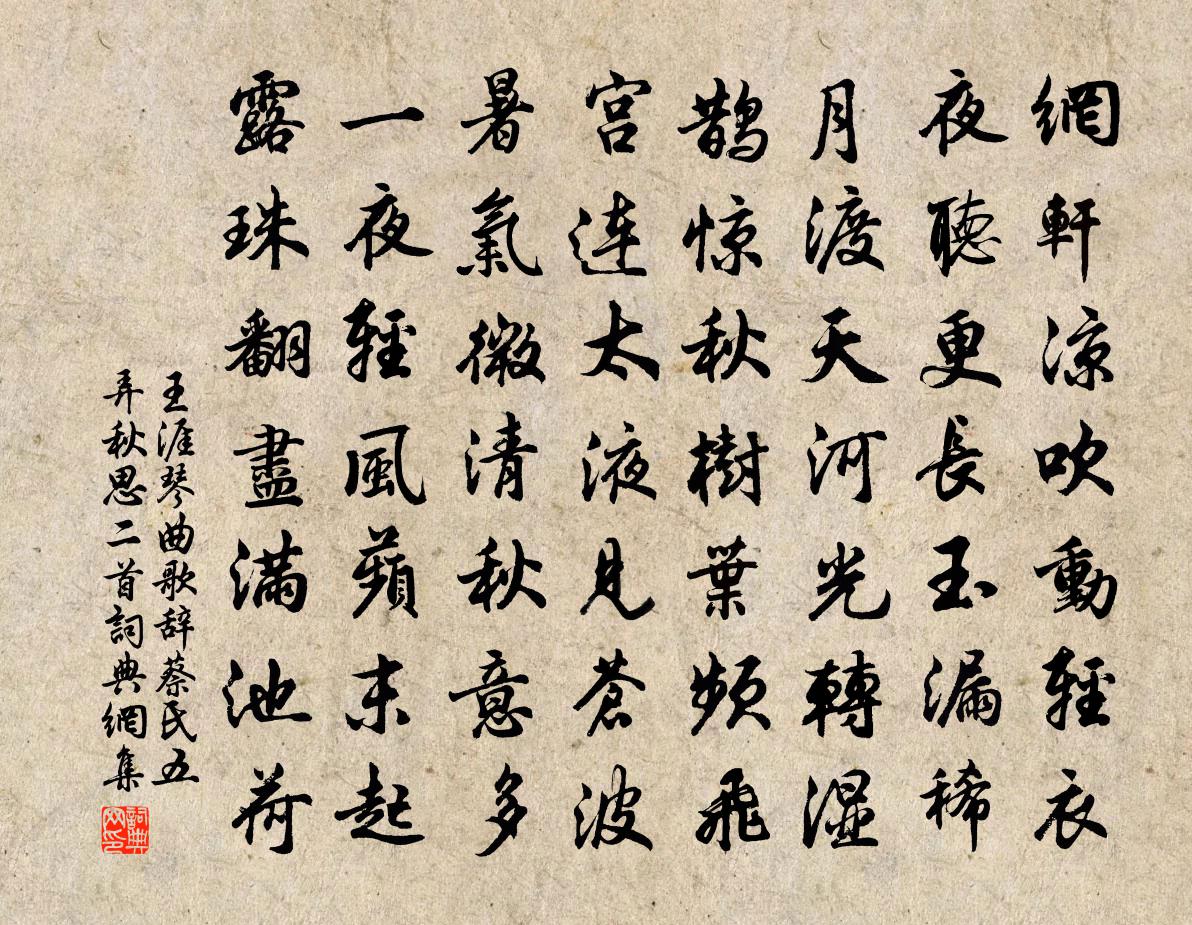 網軒涼吹動輕衣
夜聽更長玉漏稀
月渡天河光轉濕
鹊惊秋樹葉頻飛
宮連太液見蒼波
暑氣微清秋意多
一夜輕風蘋末起
露珠翻盡滿池荷
王涯琴曲歌辞蔡氏五
弄秋思二首詞典網集
詞典